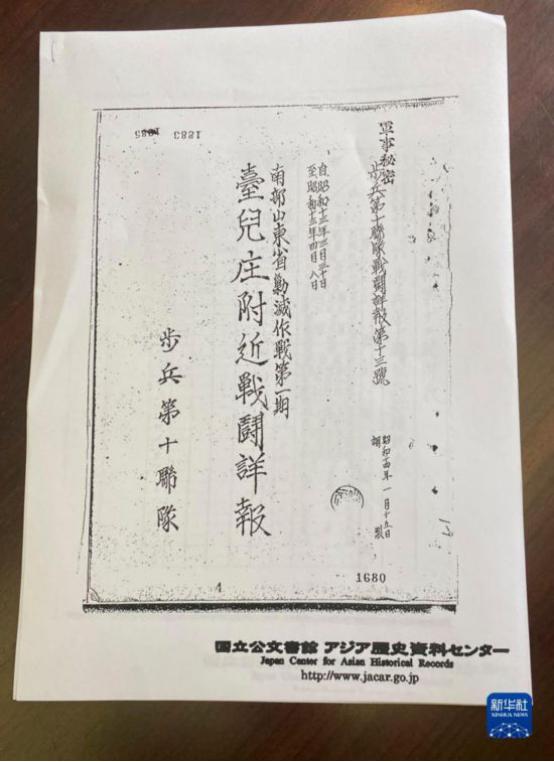 軍事秘密
步兵第十聯隊戰鬪詳報第十三號
昭和十四年一月十五日
調製
自昭和十三年三月三十日
至昭和十三年四月八日
南部山東省勦滅作戰第一期
臺兒庄附近戰鬪詳報
步兵第十聯隊
1883
1680
国立公文書館 アジア歴史資料センター
Japan Center for Asian Historical Records
http://www.jacar.go.jp
新华社
XINHUA NEWS